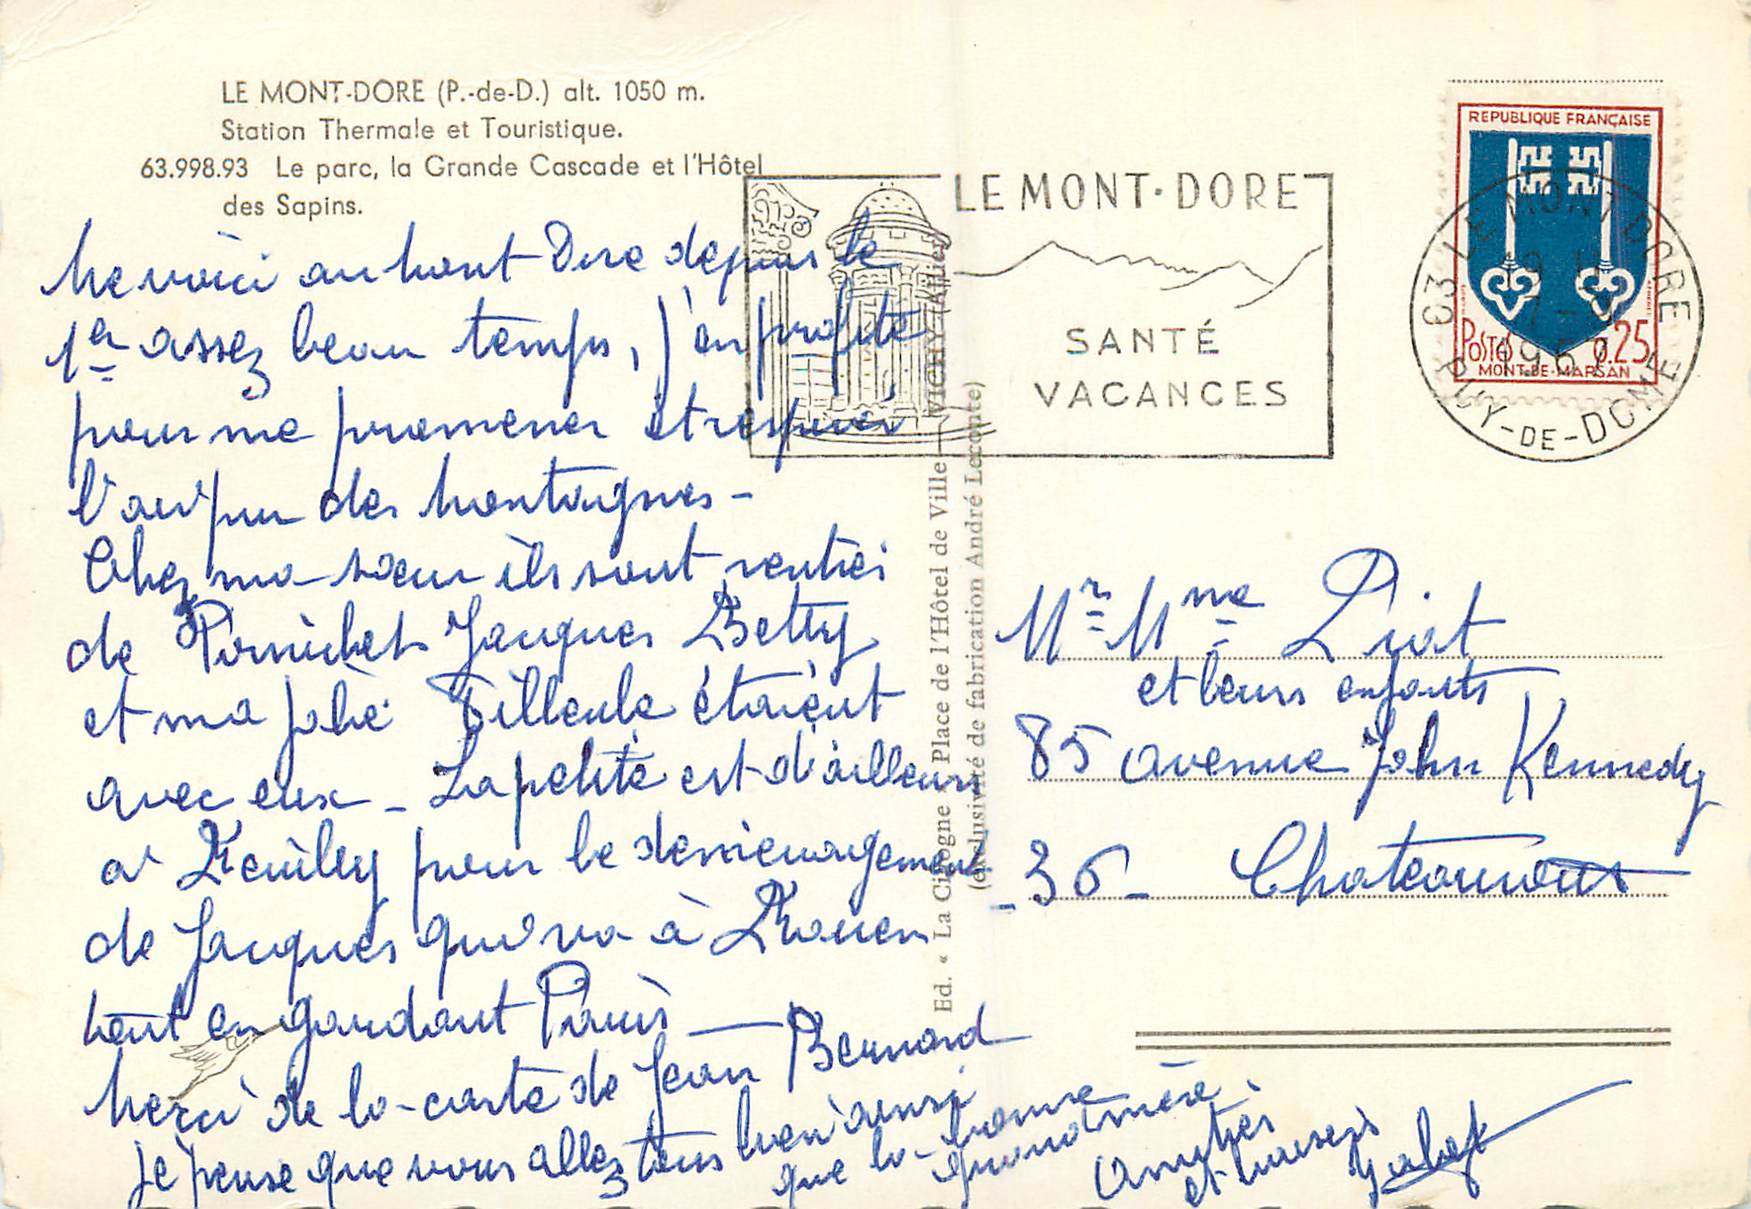 LE MONT-DORE (P.-de-D.) alt. 1050 m.
Station Thermale et Touristique.
63.998.93 Le parc, la Grande Cascade et l'Hôtel
des Sapins.
Me voici au Mont Dore depuis le
1er assez beau temps, j'en profite
pour me promener et respirer
l'air pur des Montagnes -
Chez ma sœur ils sont rentrés
de Pornichet Jacques Betty
et ma jolie Filleule étaient
avec eux - La petite est d'ailleurs
à Neuilly pour le déménagement
de Jacques qui va à Rouen
tout en gardant Paris —
Merci de la carte de Jean Bernard
je pense que vous allez tous bien ainsi
que la bonne
grand mère
Amitiés
et baisers
LE MONT-DORE
SANTÉ
VACANCES
REPUBLIQUE FRANÇAISE
POSTES 0.25
MONT-DE-MARSAN
63 LE MONT DORE
19 H
7 -
1967
PUY-DE-DOME
Ed. « La Cigogne Place de l'Hôtel de Ville — VICHY (Allier)
(exclusivité de fabrication André Leconte)
Mr Mme Piat
et leurs enfants
85 avenue John Kennedy
- 36 - Chateauroux